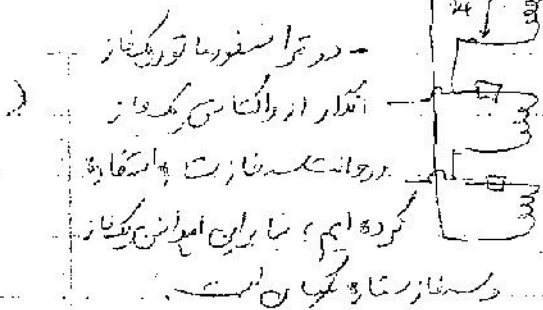 - در ترانسفورماتور یکفاز
انگار از راکتانس یک فاز
در حالت سه فاز ستاره استفاده
کرده ایم، بنابراین امپدانس یکفاز
و سه فاز ستاره یکسان است.